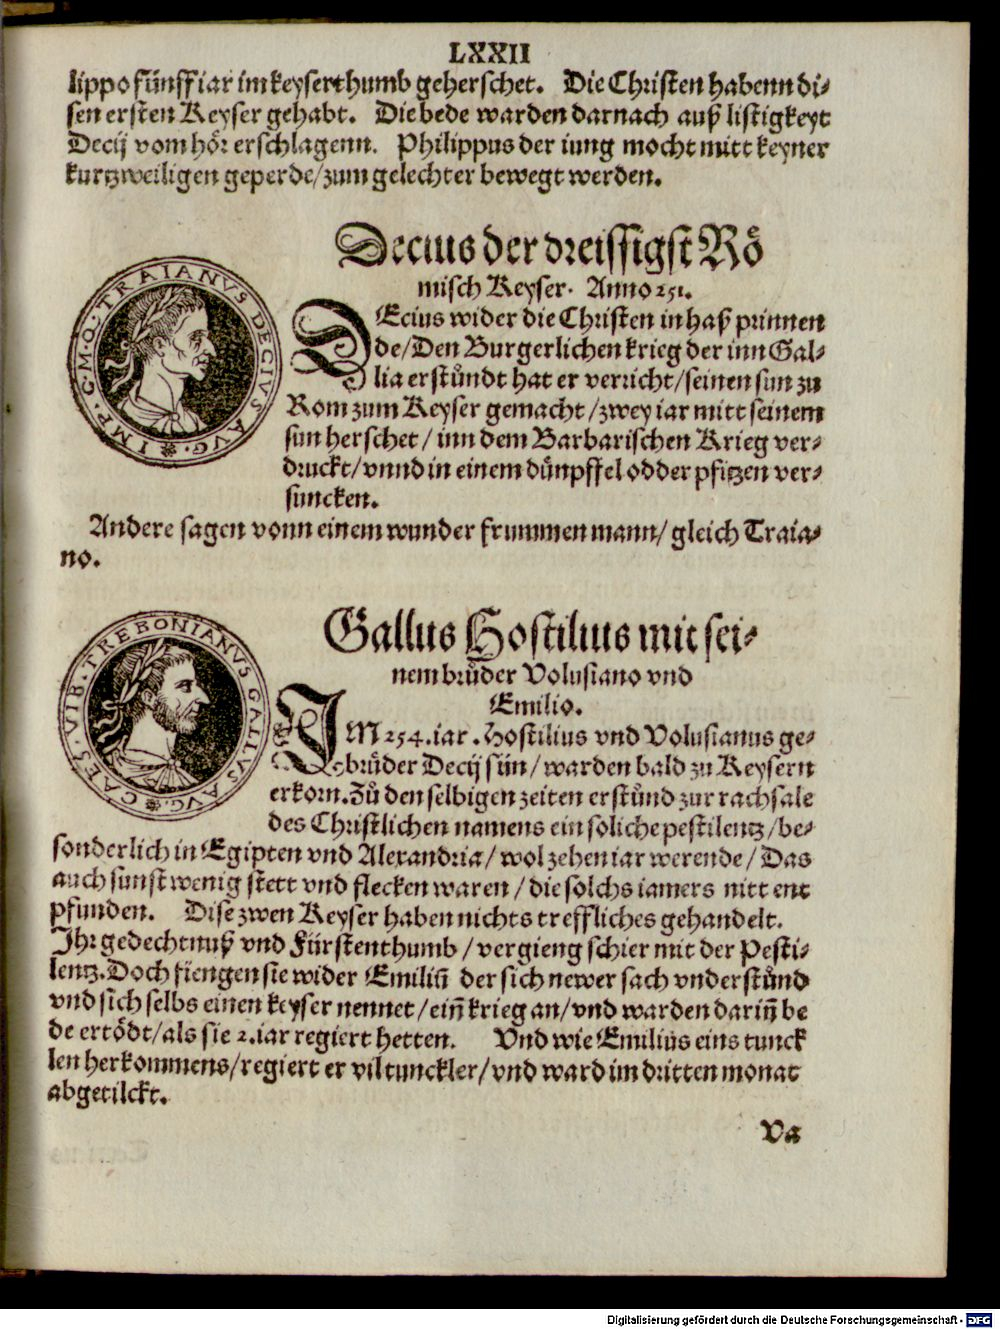 LXXII
lippo fünff iar im keyserthumb geherschet. Die Christen habenn di-
sen ersten Keyser gehabt. Die bede warden darnach auß listigkeyt
Decij vom hör erschlagenn. Philippus der iung mocht mitt keyner
kurtzweiligen geperde/zum gelechter bewegt werden.
Decius der dreissigst Rö
misch Keyser. Anno 251.
IMP. C. M. Q. TRAIANVS DECIVS AVG.
DEcius wider die Christen in haß prinnen
de/Den Burgerlichen krieg der inn Gal-
lia erstůndt hat er verricht/seinen sun zu
Rom zum Keyser gemacht/zwey iar mitt seinem
sun herschet/inn dem Barbarischen Krieg ver-
druckt/vnnd in einem dünpffel odder pfitzen ver-
suncken.
Andere sagen vonn einem wunder frummen mann/gleich Traia-
no.
Gallus Hostilius mit sei-
nem brůder Volusiano vnd
Emilio.
CAES. VIB. TREBONIANVS GALLVS AVG.
IM 254. iar. Hostilius vnd Volusianus ge-
brůder Decij sün/warden bald zu Keysern
erkorn. Zů den selbigen zeiten erstůnd zur rachsale
des Christlichen namens ein soliche pestilentz/be-
sonderlich in Egipten vnd Alexandria/wol zehen iar werende/Das
auch sunst wenig stett vnd flecken waren/die solchs iamers nitt ent
pfunden. Dise zwen Keyser haben nichts treffliches gehandelt.
Ihr gedechtnuß vnd Fürstenthumb/vergieng schier mit der Pesti-
lentz. Doch fiengen sie wider Emiliū der sich newer sach vnderstůnd
vnd sich selbs einen keyser nennet/ein̄ krieg an/vnd warden darin̄ be
de ertödt/als sie 2. iar regiert hetten. Vnd wie Emilius eins tunck
len herkommens/regiert er vil tunckler/vnd ward im dritten monat
abgetilckt.
Va
Digitalisierung gefördert durch die Deutsche Forschungsgemeinschaft - DFG